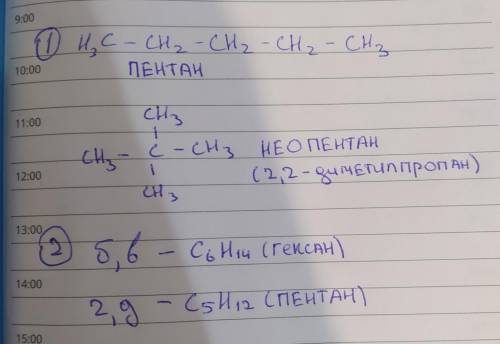 9:00
① H₃C – CH₂ – CH₂ – CH₂ – CH₃
10:00
ПЕНТАН
CH₃
11:00
CH₃ – C – CH₃ НЕОПЕНТАН
12:00
(2,2-диметилпропан)
CH₃
13:00
② б, в – C₆H₁₄ (гексан)
14:00
г, д – C₅H₁₂ (ПЕНТАН)
15:00